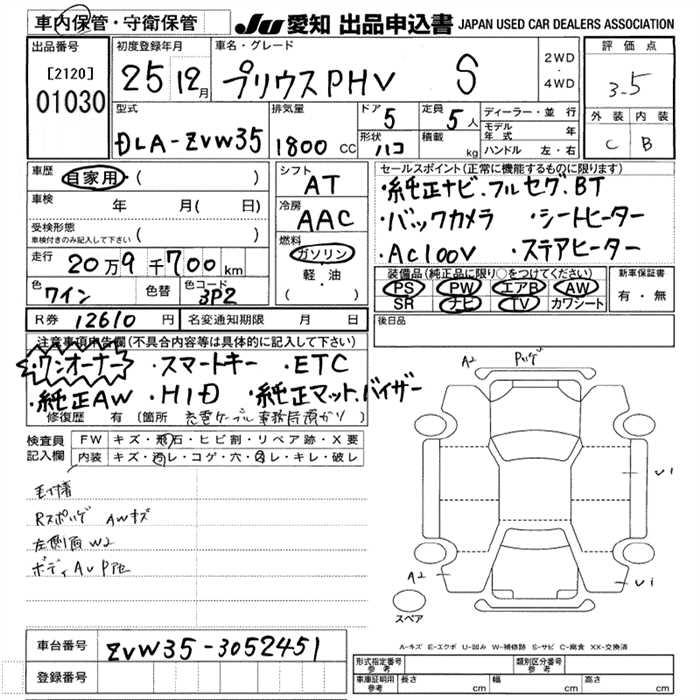 車内保管・守衛保管
JU 愛知 出品申込書 JAPAN USED CAR DEALERS ASSOCIATION
出品番号
[2120]
01030
初度登録年月
25 12月
車名・グレード
プリウスPHV S
2WD
・
4WD
評価点
3.5
外装 内装
C B
型式
DLA-ZVW35
排気量
1800 CC
ドア 5
形状 ハコ
定員 5人
積載 kg
ディーラー・並行
モデル年式 年
ハンドル 左・右
車歴
自家用・( )
車検 年 月( 日)
受検形態
車検付きのみ記入して下さい ( )
走行 20万9千700km
色 ワイン 色替 色コード 3P2
シフト
AT
冷房
AAC
燃料
ガソリン
・
軽・油
( )
セールスポイント(正常に機能するものに限ります)
・純正ナビ.フルセグ.BT
・バックカメラ ・シートヒーター
・AC100V ・ステアヒーター
装備品(純正品に限り○をつけてください)
PS PW エアB AW
SR ナビ TV カワシート
新車保証書
有・無
R券 12610円 名変通知期限 月 日
後日品
注意事項申告欄(不具合内容等は具体的に記入して下さい)
・ワンオーナー ・スマートキー ・ETC
・純正AW ・HID ・純正マット.バイザー
修復歴 有 (箇所 充電ケーブル事務局預かり)
検査員記入欄
FW キズ・飛石・ヒビ割・リペア跡・X要
内装 キズ・汚レ・コゲ・穴・凹レ・キレ・破レ
AWキズ
左側面W2
A2
U1
A2
U1
スペア
A-キズ E-エクボ U-凹み W-補修跡 S-サビ C-腐食 XX-交換済
車台番号 ZVW35-3052451
登録番号
形式指定番号 参考
類別区分番号 参考
車庫証明用 参考 長さ cm 幅 cm 高さ cm